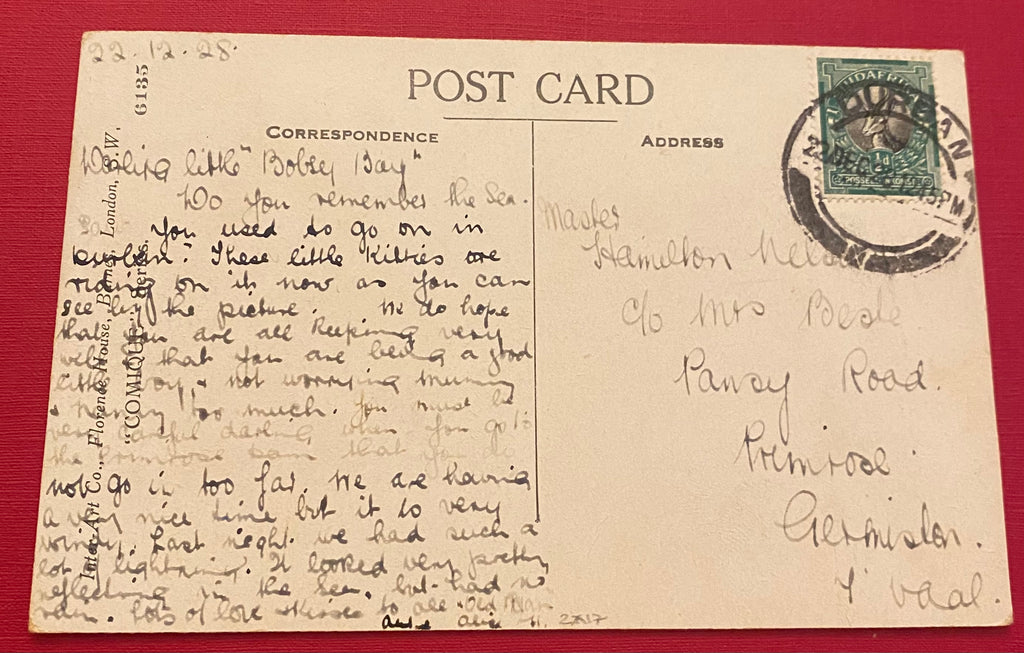 22.12.28.
POST CARD
CORRESPONDENCE
ADDRESS
Darling little "Bobsy Bay"
Do you remember the Sea-
Saw you used to go on in
Durban? These little kitties are
riding on it now as you can
see by the picture. We do hope
that you are all keeping very
well & that you are being a good
little boy, & not worrying mummy
& nanny too much. You must be
very careful darling when you go to
the Primrose Dam that you do
not go in too far. We are having
a very nice time but it is very
windy. Last night we had such a
lot lightning. It looked very pretty
reflecting in the Sea, but had no
rain. Lots of love & kisses to all
2717
Master
Hamilton
c/o Mrs
Pansy Road.
Primrose.
Germiston.
T'vaal.
DURBAN
22 DEC
PM
SUIDAFRIKA
½d
POSSEEL
Inter-Art Co., Florence House, Barnes, London, S.W.
"COMIQUE" Series.
6135